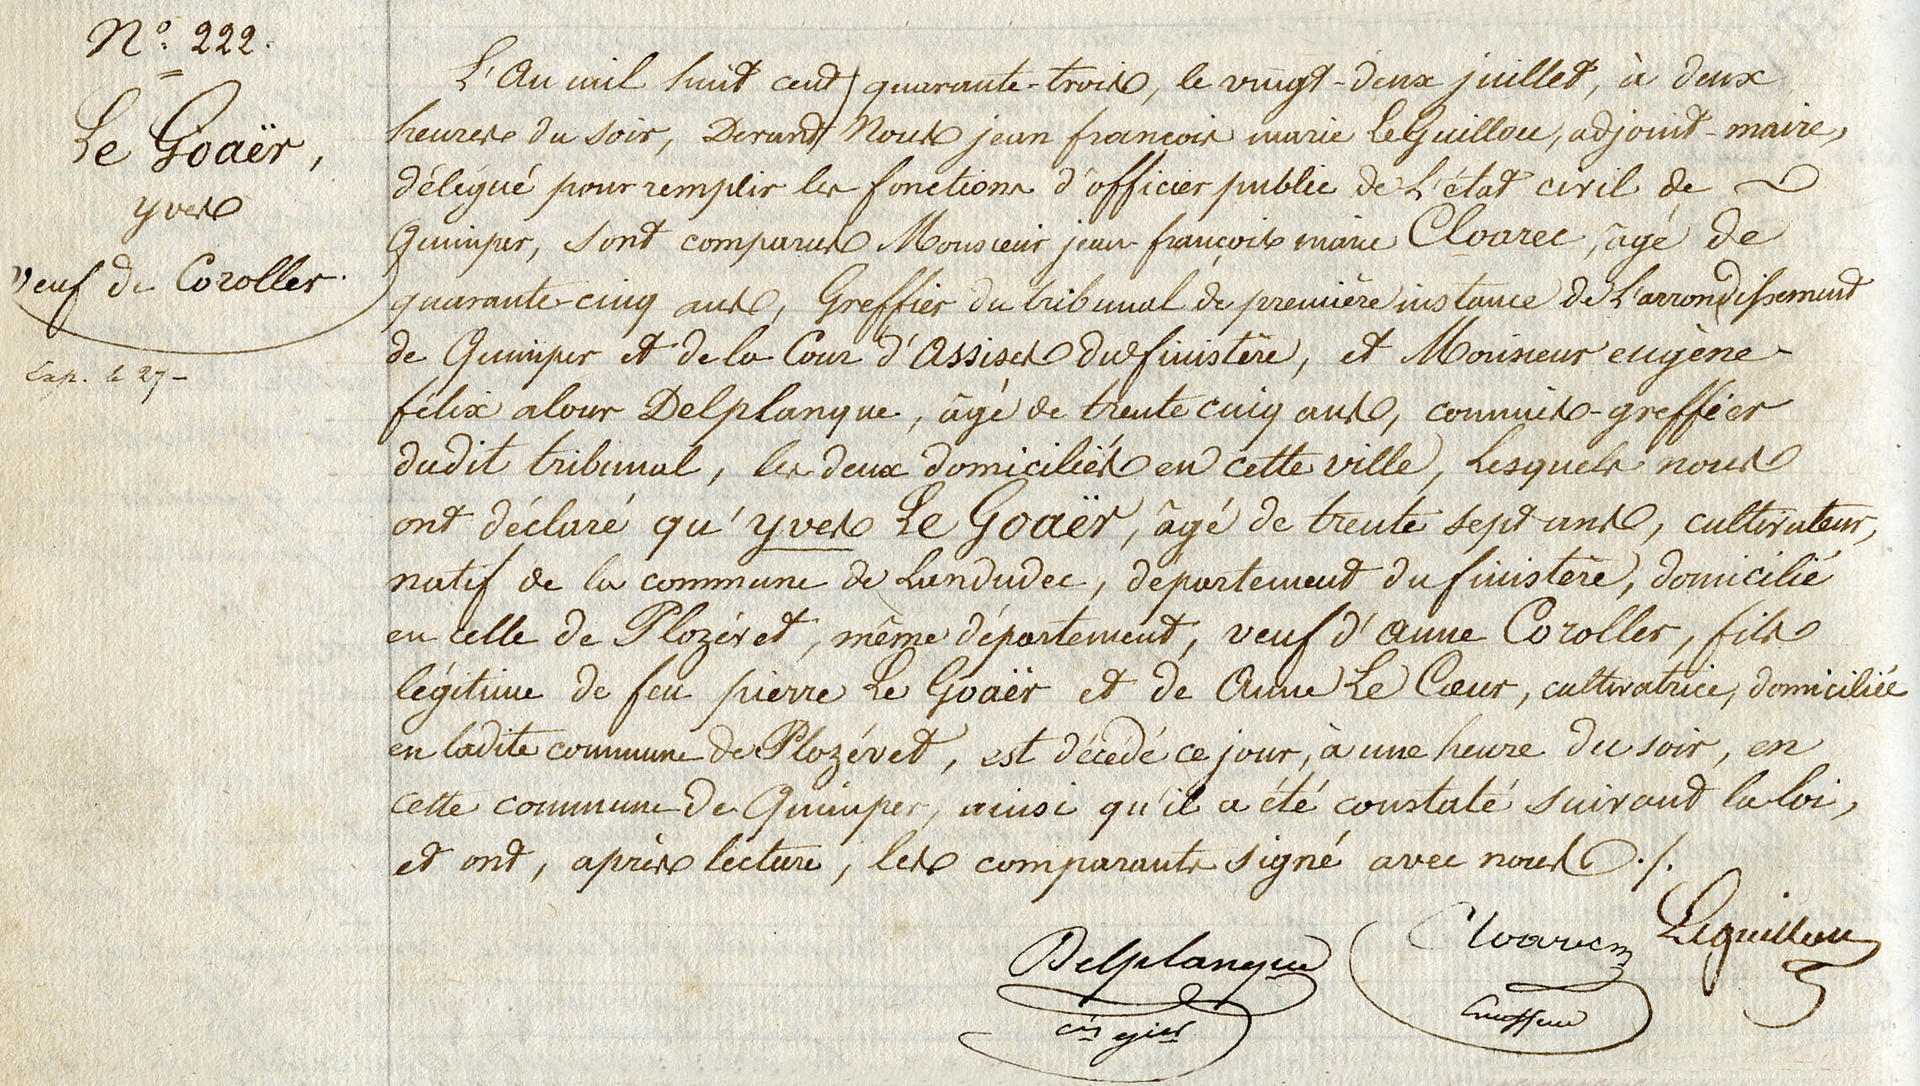 N.º 222.
Le Goaër,
yves
veuf de Coroller.
Exp. le 27 -
L'An mil huit cent quarante-trois, le vingt-deux juillet, à deux
heures du soir, Devant Nous jean françois marie LeGuillou, adjoint-maire,
délégué pour remplir les fonctions d'officier public de L'état civil de
Quimper, sont comparus Monsieur jean-françois marie Cloarec, âgé de
quarante-cinq ans, Greffier du tribunal de première instance de L'arrondissement
de Quimper et de la Cour d'Assises du finistère, et Monsieur eugène
félix alour Delplanque, âgé de trente cinq ans, commis-greffier
dudit tribunal, les deux domiciliés en cette ville, Lesquels nous
ont déclaré qu'yves Le Goaër, âgé de trente sept ans, cultivateur,
natif de la commune de Landudec, département du finistère, domicilié
en celle de Plozévet, même département, veuf d'anne Coroller, fils
légitime de feu pierre Le Goaër et de Anne Le Cœur, cultivatrice, domiciliée
en ladite commune de Plozévet, est décédé ce jour, à une heure du soir, en
cette commune de Quimper, ainsi qu'il a été constaté suivant la loi,
et ont, après lecture, les comparants signé avec nous ./.
Delplanque
Cloarec
Leguillou